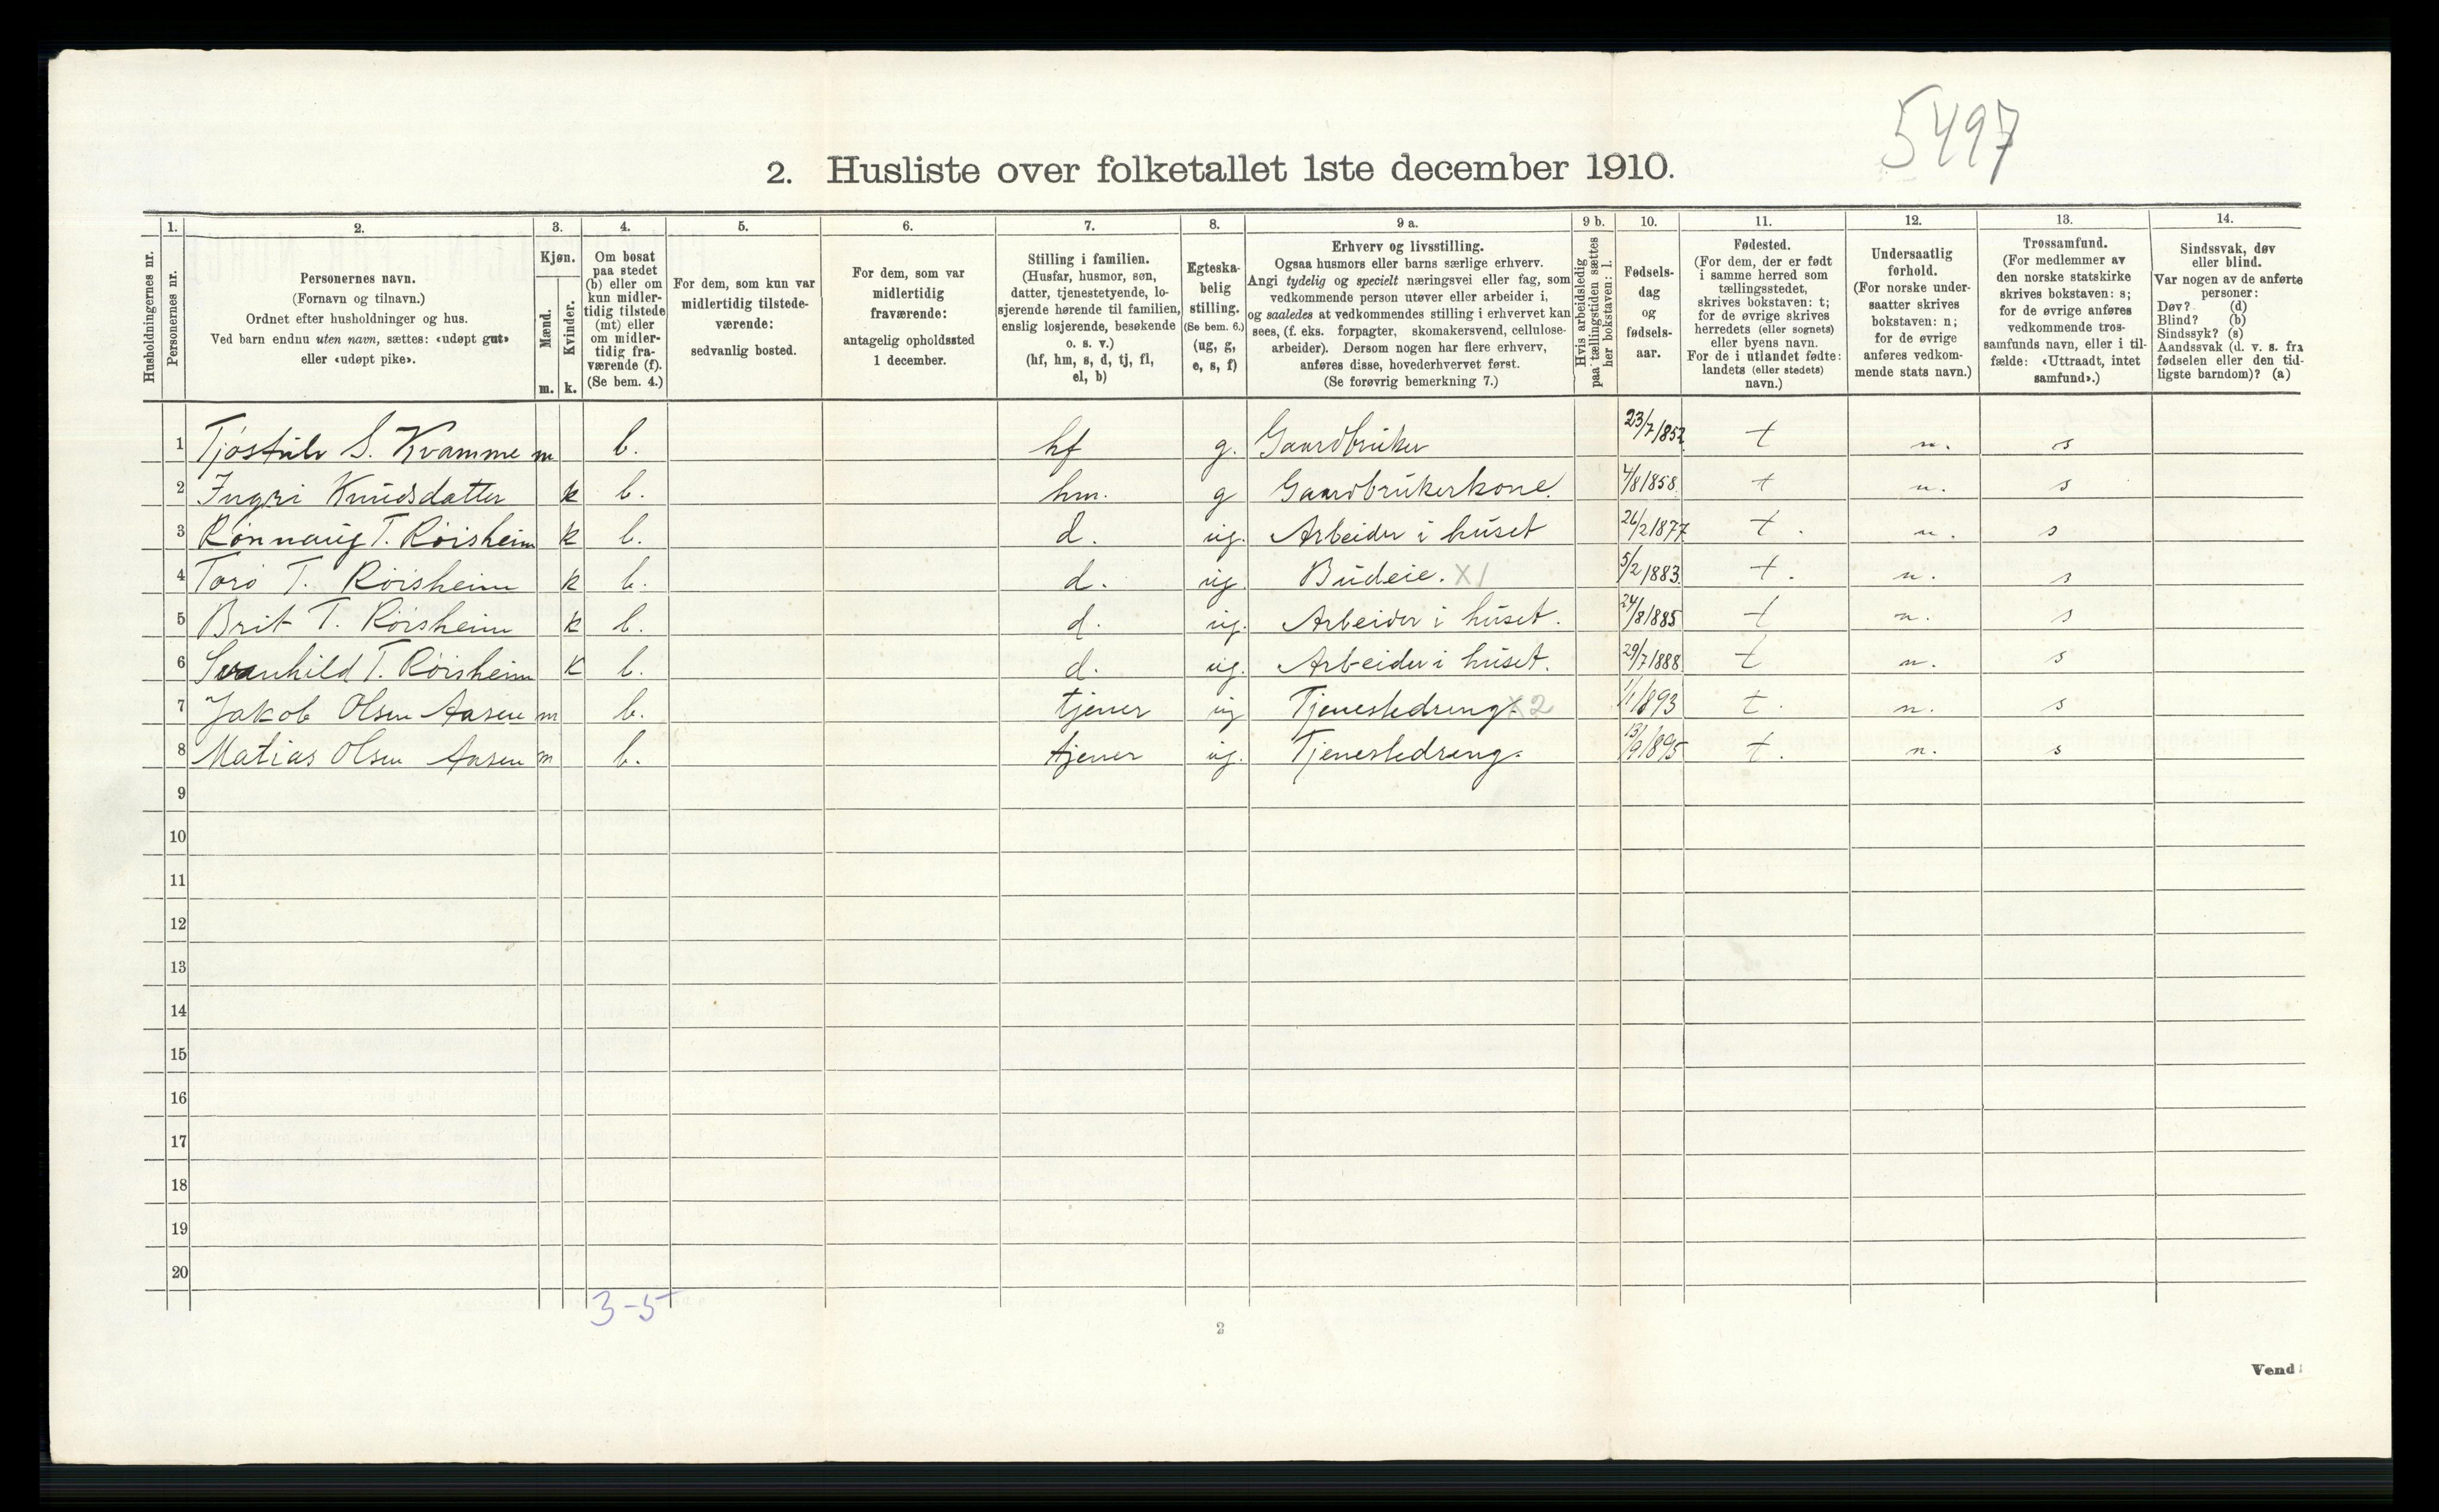 5497
2. Husliste over folketallet 1ste december 1910.
1. 2. 3. 4. 5. 6. 7. 8. 9 a. 9 b. 10. 11. 12. 13. 14.
Husholdningernes nr.
Personernes nr.
Personernes navn.
(Fornavn og tilnavn.)
Ordnet efter husholdninger og hus.
Ved barn endnu uten navn, sættes: «udøpt gut»
eller «udøpt pike».
Kjøn.
Mænd.
m.
Kvinder.
k.
Om bosat
paa stedet
(b) eller om
kun midler-
tidig tilstede
(mt) eller
om midler-
tidig fra-
værende (f).
(Se bem. 4.)
For dem, som kun var
midlertidig tilstede-
værende:
sedvanlig bosted.
For dem, som var
midlertidig
fraværende:
antagelig opholdssted
1 december.
Stilling i familien.
(Husfar, husmor, søn,
datter, tjenestetyende, lo-
sjerende hørende til familien,
enslig losjerende, besøkende
o. s. v.)
(hf, hm, s, d, tj, fl,
el, b)
Egteska-
belig
stilling.
(Se bem. 6.)
(ug, g,
e, s, f)
Erhverv og livsstilling.
Ogsaa husmors eller barns særlige erhverv.
Angi tydelig og specielt næringsvei eller fag, som
vedkommende person utøver eller arbeider i,
og saaledes at vedkommendes stilling i erhvervet kan
sees, (f. eks. forpagter, skomakersvend, cellulose-
arbeider). Dersom nogen har flere erhverv,
anføres disse, hovederhvervet først.
(Se forøvrig bemerkning 7.)
Hvis arbeidsledig
paa tællingstiden sættes
her bokstaven: l.
Fødsels-
dag
og
fødsels-
aar.
Fødested.
(For dem, der er født
i samme herred som
tællingsstedet,
skrives bokstaven: t;
for de øvrige skrives
herredets (eller sognets)
eller byens navn.
For de i utlandet fødte:
landets (eller stedets)
navn.)
Undersaatlig
forhold.
(For norske under-
saatter skrives
bokstaven: n;
for de øvrige
anføres vedkom-
mende stats navn.)
Trossamfund.
(For medlemmer av
den norske statskirke
skrives bokstaven: s;
for de øvrige anføres
vedkommende tros-
samfunds navn, eller i til-
fælde: «Uttraadt, intet
samfund».)
Sindssvak, døv
eller blind.
Var nogen av de anførte
personer:
Døv? (d)
Blind? (b)
Sindssyk? (s)
Aandssvak (d. v. s. fra
fødselen eller den tid-
ligste barndom)? (a)
1 Tjøstulv S. Kvamme m b. hf g. Gaardbruker 23/7/1852 t n. s
2 Ingri Knudsdatter k b. hm. g Gaardbrukerkone. 4/8 1858. t n. s
3 Rønnaug T. Røisheim k b. d. ug. Arbeider i huset 26/2 1877 t. n. s
4 Toro T. Røisheim k b. d. ug. Budeie. X1 5/2 1883. t. n. s
5 Brit T. Røisheim k b. d. ug. Arbeider i huset. 24/8 1885 t n. s
6 Svanhild T. Røisheim k b. d. ug. Arbeider i huset. 29/7 1888. t n. s
7 Jakob Olsen Aasen m b. tjener ug Tjenestedreng. X2 1/1 1893 t. n. s
8 Matias Olsen Aasen m b. tjener ug. Tjenestedreng. 13/9 1895 t. n. s
9
10
11
12
13
14
15
16
17
18
19
20
3-5
2
Vend!